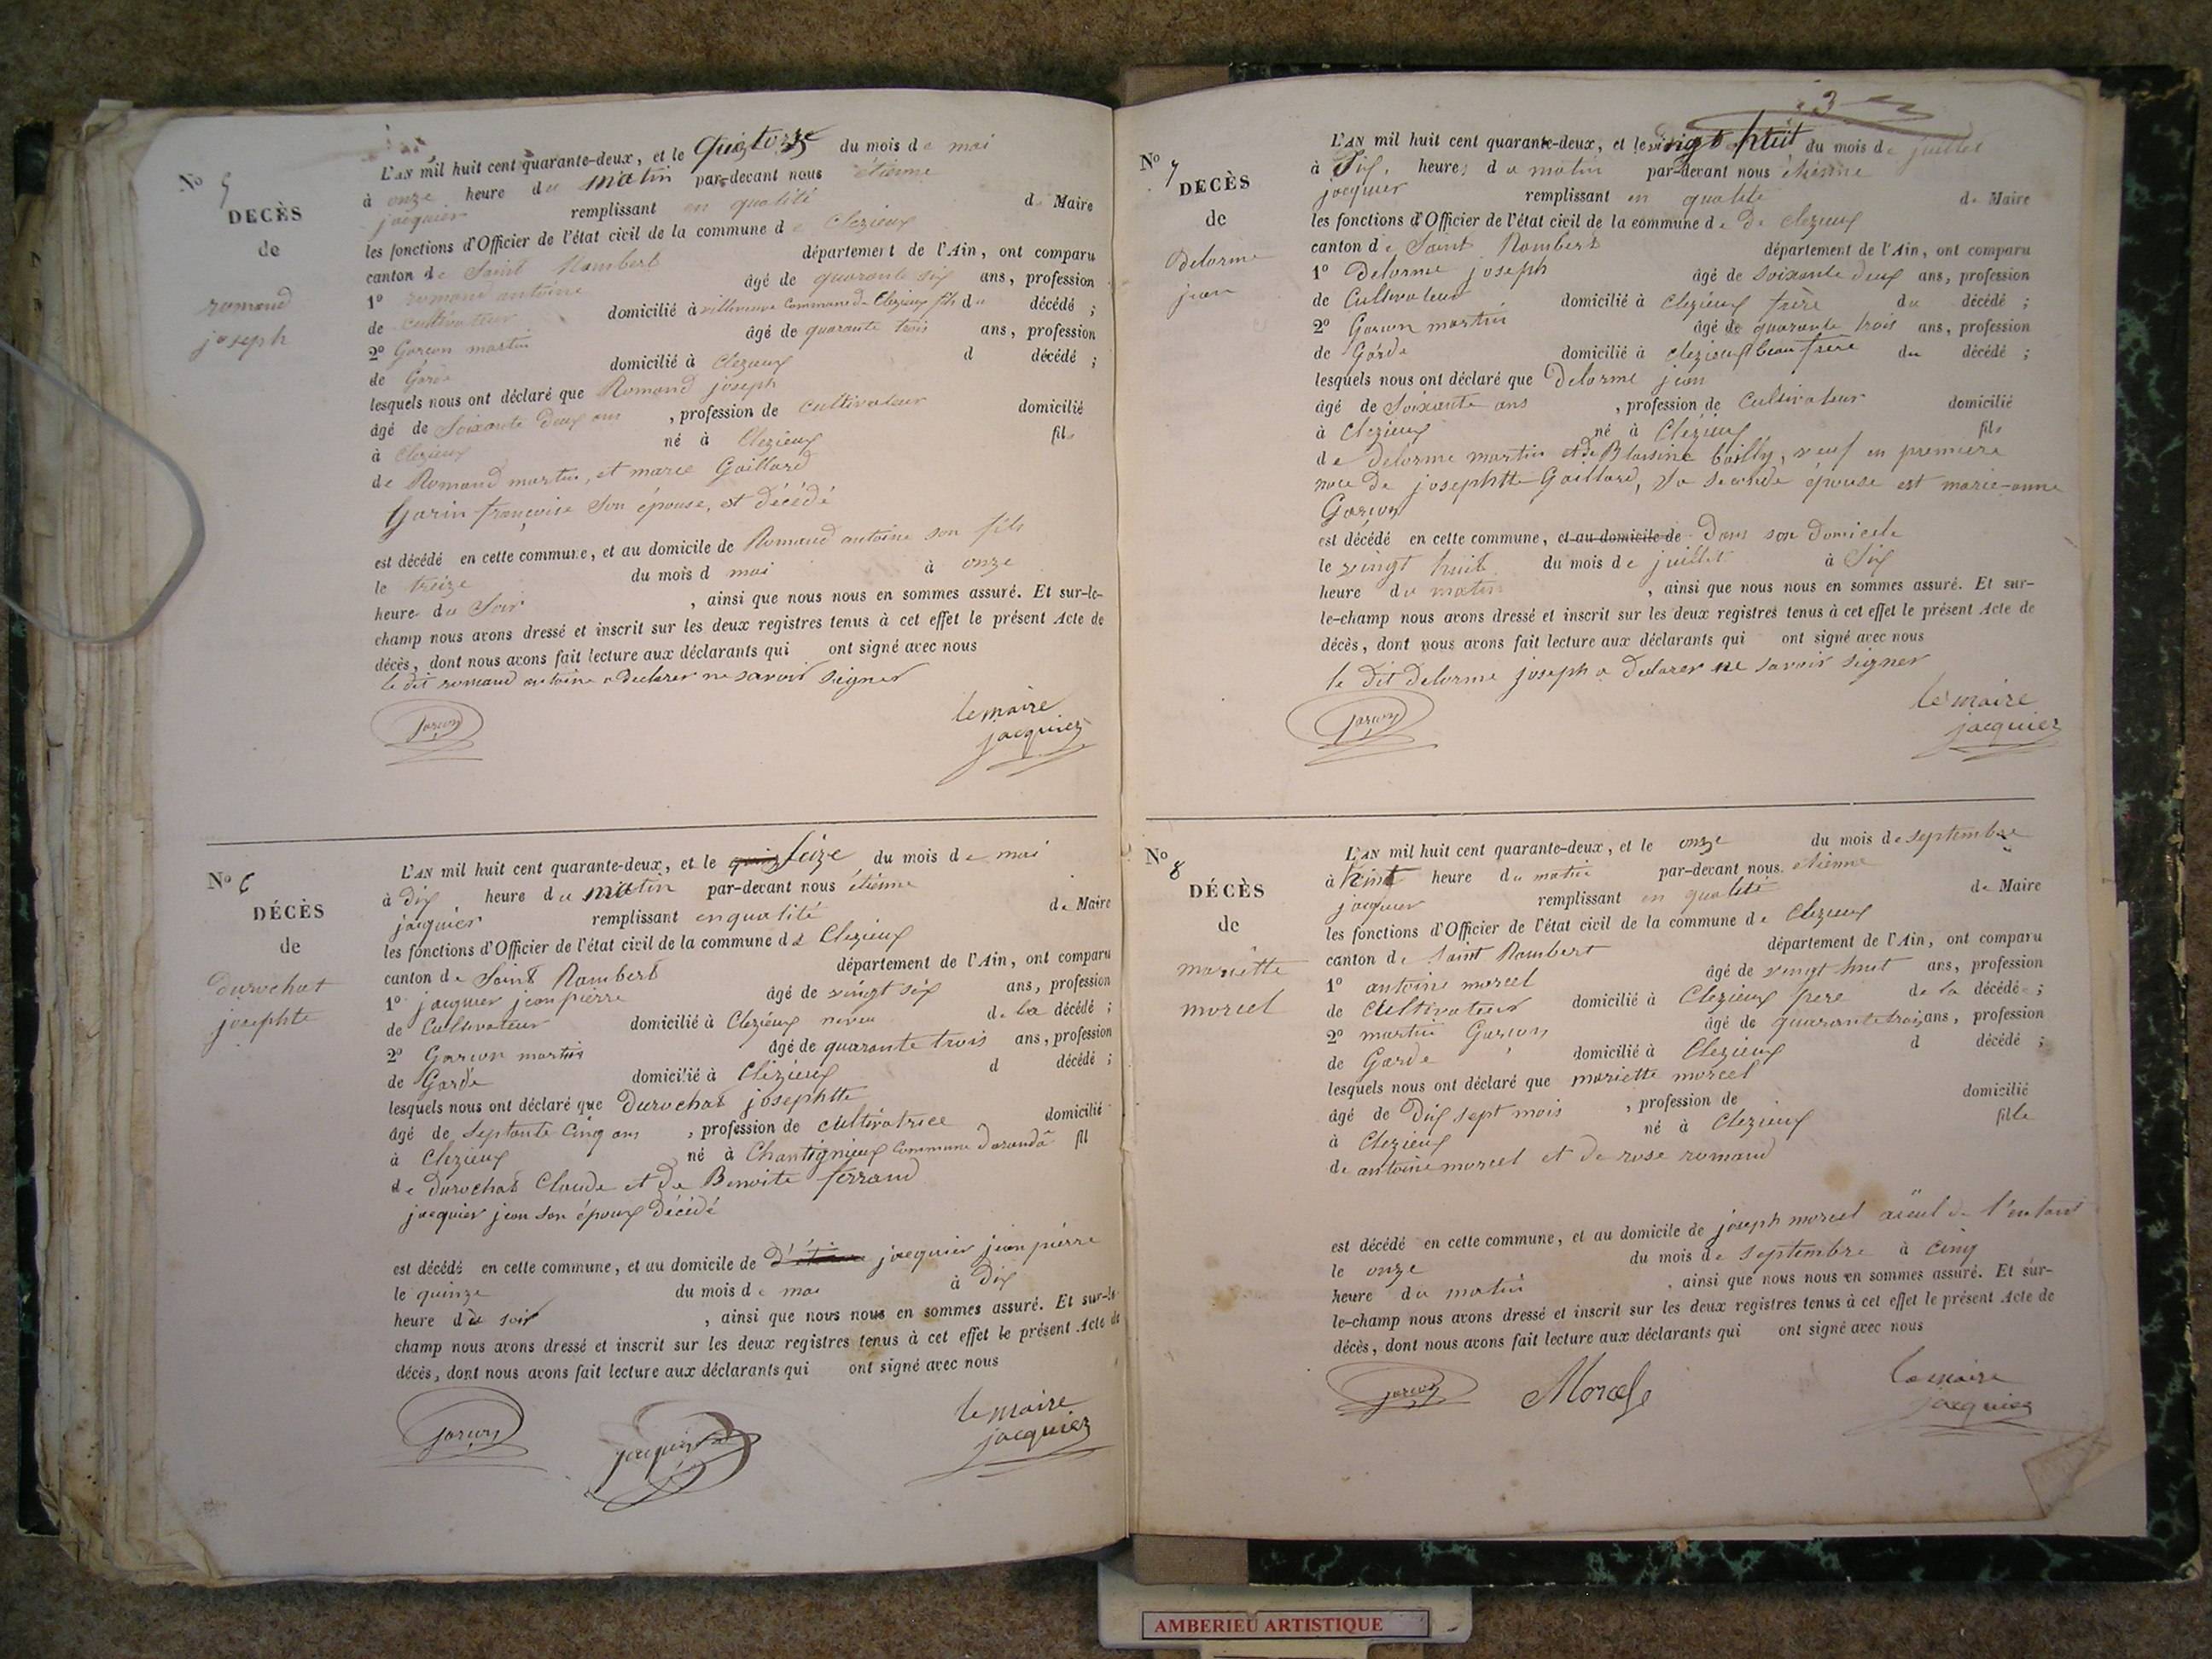 N° 5
DECÈS
de
romand
joseph
L'AN mil huit cent quarante-deux, et le Quatorze du mois de mai
à onze heure du matin par-devant nous étienne
jacquier remplissant en qualité de Maire
les fonctions d'Officier de l'état civil de la commune de Clezieux
canton de Saint Rambert département de l'Ain, ont comparu
1° romand antoine âgé de quarante six ans, profession
de cultivateur domicilié à villeneuve Commune de Clezieux fils du décédé ;
2° Garcon martin âgé de quarante trois ans, profession
de Garde domicilié à Clezieux d décédé ;
lesquels nous ont déclaré que Romand joseph
âgé de Soixante Deux ans , profession de Cultivateur domicilié
à Clezieux né à Clezieux fils
de Romand martin, et marie Gaillard
Garin françoise Son épouse, est décédé
est décédé en cette commune, et au domicile de Romand antoine son fils
le treize du mois d mai à onze
heure du Soir , ainsi que nous nous en sommes assuré. Et sur-le-
champ nous avons dressé et inscrit sur les deux registres tenus à cet effet le présent Acte de
décès, dont nous avons fait lecture aux déclarants qui ont signé avec nous
le dit romand antoine a declarer ne savoir signer
garcon le maire
jacquier
N° 6
DÉCÈS
de
durochat
josephte
L'AN mil huit cent quarante-deux, et le quinz Seize du mois de mai
à Dix heure du matin par-devant nous étienne
jacquier remplissant en qualité de Maire
les fonctions d'Officier de l'état civil de la commune de Clezieux
canton de Saint Rambert département de l'Ain, ont comparu
1° jacquier jean pierre âgé de vingt six ans, profession
de Cultivateur domicilié à Clezieux neveu de la décédé ;
2° Garcon martin âgé de quarante trois ans, profession
de Garde domicilié à Clezieux d décédé ;
lesquels nous ont déclaré que Durochat josephtte
âgé de Septante Cinq ans , profession de cultivatrice domicilié
à Clezieux né à Chantignieux Commune Daranda fil
de durochat Claude et de Benoite ferrand
jacquier jean son époux Décédé
est décédé en cette commune, et au domicile de jacquier jean pierre
le quinze du mois de mai à Dix
heure du soir , ainsi que nous nous en sommes assuré. Et sur-le-
champ nous avons dressé et inscrit sur les deux registres tenus à cet effet le présent Acte de
décès, dont nous avons fait lecture aux déclarants qui ont signé avec nous
garcon jacquier le maire
jacquier
3
N° 7
DECÈS
de
Delorme
jean
L'AN mil huit cent quarante-deux, et le vingt huit du mois de juillet
à Six heures du matin par-devant nous étienne
jacquier remplissant en qualité de Maire
les fonctions d'Officier de l'état civil de la commune de De Clezieux
canton de Saint Rambert département de l'Ain, ont comparu
1° Delorme joseph âgé de Soixante deux ans, profession
de Cultivateur domicilié à Clezieux frère du décédé ;
2° Garcon martin âgé de quarante trois ans, profession
de Garde domicilié à Clezieux beau frère du décédé ;
lesquels nous ont déclaré que Delorme jean
âgé de Soixante ans , profession de Cultivateur domicilié
à Clezieux né à Clezieux fils
de Delorme martin et de Blaisine bailly, veuf en premiere
noce de josephtte Gaillard, Sa seconde épouse est marie-anne
Garcon
est décédé en cette commune, et au domicile de Dans son Domicile
le vingt huit du mois de juillet à Six
heure du matin , ainsi que nous nous en sommes assuré. Et sur-
le-champ nous avons dressé et inscrit sur les deux registres tenus à cet effet le présent Acte de
décès, dont nous avons fait lecture aux déclarants qui ont signé avec nous
le Dit Delorme joseph a Declarer ne savoir signer
garcon le maire
jacquier
N° 8
DÉCÈS
de
mariette
morcel
L'AN mil huit cent quarante-deux, et le onze du mois de septembre
à heure du matin par-devant nous etienne
jacquier remplissant en qualité de Maire
les fonctions d'Officier de l'état civil de la commune de Clezieux
canton de Saint Rambert département de l'Ain, ont comparu
1° antoine morcel âgé de vingt huit ans, profession
de Cultivateur domicilié à Clezieux pere de la décédé ;
2° martin Garcon âgé de quarante trois ans, profession
de Garde domicilié à Clezieux d décédé ;
lesquels nous ont déclaré que mariette morcel
âgé de Dix sept mois , profession de domicilié
à Clezieux né à Clezieux fille
de antoine morcel et de rose romand
est décédé en cette commune, et au domicile de joseph morcel aïeul de l'enfant
le onze du mois de septembre à cinq
heure du matin , ainsi que nous nous en sommes assuré. Et sur-
le-champ nous avons dressé et inscrit sur les deux registres tenus à cet effet le présent Acte de
décès, dont nous avons fait lecture aux déclarants qui ont signé avec nous
garcon Morcel le maire
jacquier
AMBERIEU ARTISTIQUE